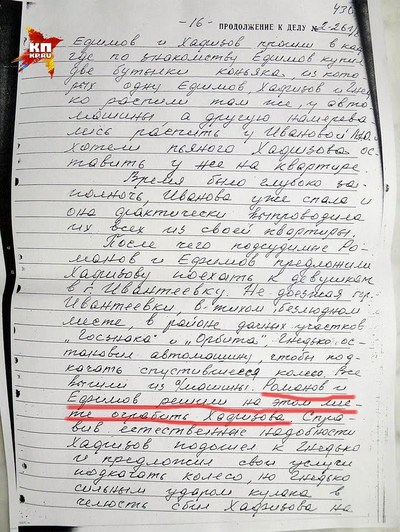 430
- 16 -
ПРОДОЛЖЕНИЕ К ДЕЛУ № 2-261
КП
KP.RU
Ефимов и Хафизов прошли в
где по знакомству Ефимов купил
две бутылки коньяка, из кото-
рых одну Ефимов, Хафизов и
ко распили там же, у авто
машины, а другую намерева
лись распить у Ивановой
Хотели пьяного Хафизова ос-
тавить у нее на квартире.
Время было глубоко за-
полночь, Иванова уже спала и
она фактически выпроводила
их всех из своей квартиры.
После чего подсудимые Ро-
манов и Ефимов предложили
Хафизову поехать к девушкам
в г. Ивантеевку. Не доезжая гор.
Ивантеевки, в тихом безлюдном
месте, в районе дачных участков
"Госзнака" и "Орбита", Гнедько ос-
тановил автомашину, чтобы под-
качать спустившееся колесо. Все
вышли из машины. Романов и
Ефимов решили на этом ме-
сте ограбить Хафизова. Спра-
вив естественные надобности
Хафизов подошел к Гнедько
и предложил свои услуги
подкачать колесо, но Гнедько
сильным ударом кулака в
челюсть сбил Хафизова на